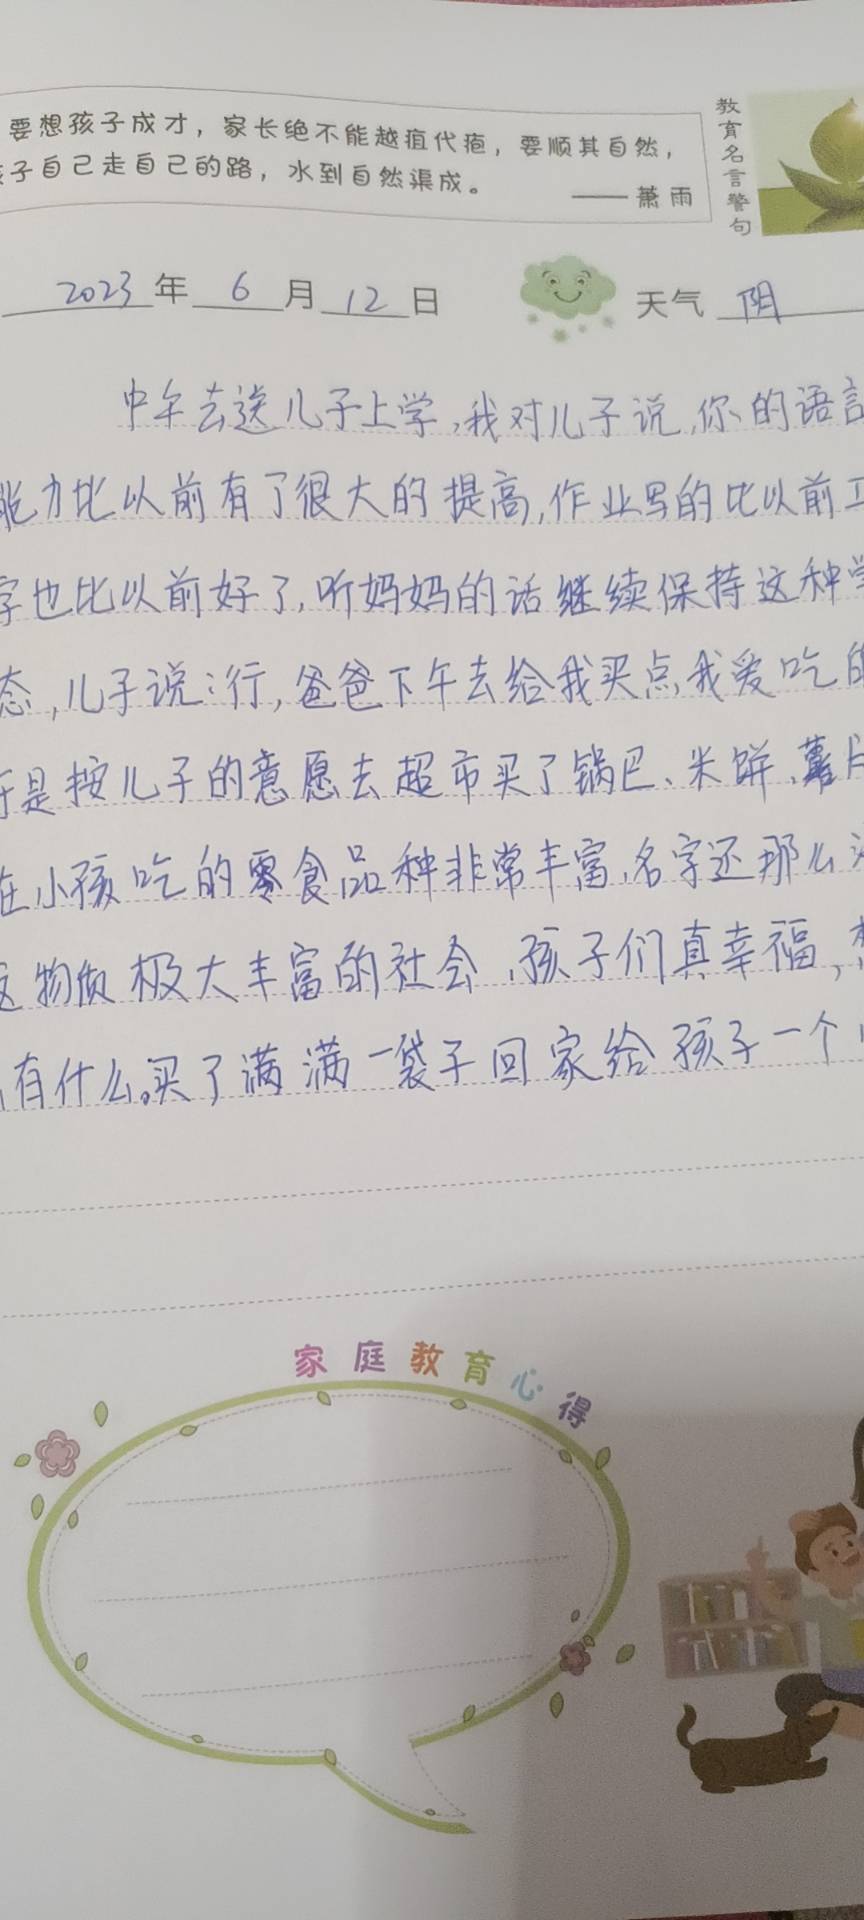 要想孩子成才，家长绝不能越疽代疱，要顺其自然，
子自己走自己的路，水到自然渠成。
——萧雨
教育名言警句
2023年6月12日
天气 阴
中午去送儿子上学,我对儿子说,你的语言
能力比以前有了很大的提高,作业写的比以前工
字也比以前好了,听妈妈的话继续保持这种学
态,儿子说:行,爸爸下午去给我买点我爱吃的
于是按儿子的意愿去超市买了锅巴、米饼、薯片
在小孩吃的零食品种非常丰富,名字还那么
这物质极大丰富的社会,孩子们真幸福,想
有什么。买了满满一袋子回家给孩子一个
家庭教育心得